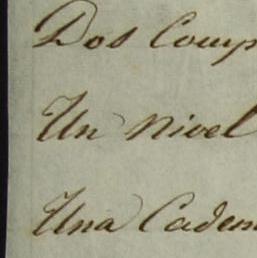 Dos Comp
Un Nivel
Una Caden